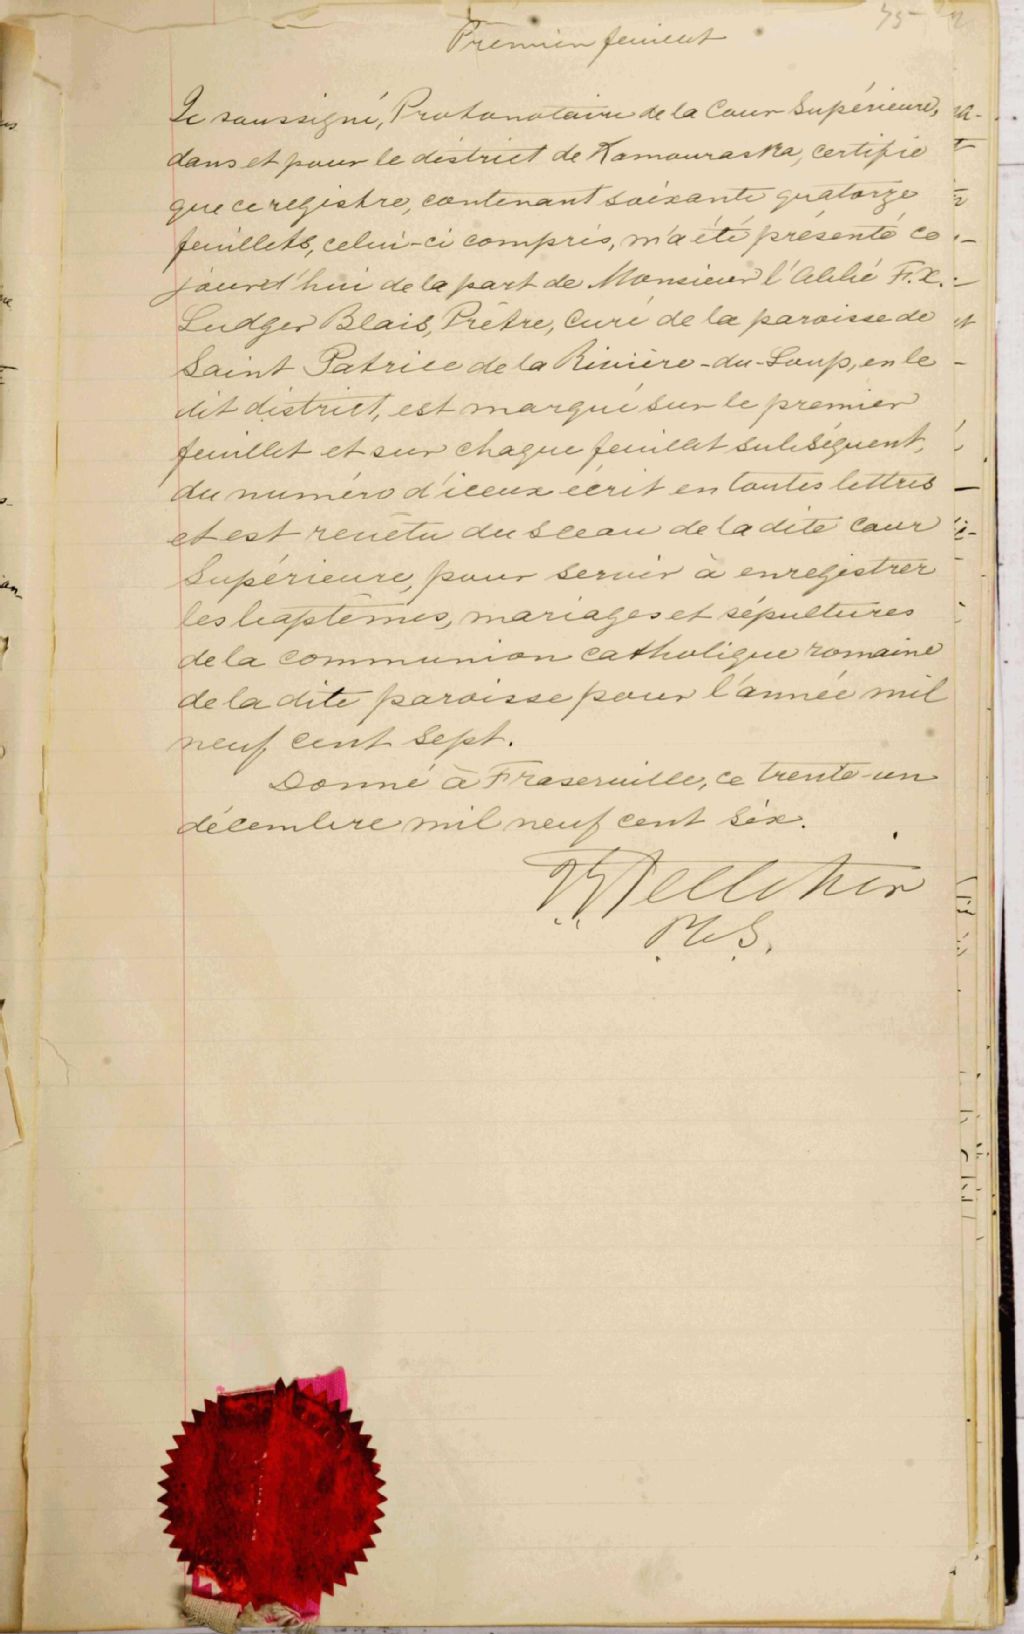 Premier feuillet
Je soussigné, Protonotaire de la Cour Supérieure,
dans et pour le district de Kamouraska, certifie
que ce registre, contenant soixante quatorze
feuillets, celui-ci compris, m'a été présenté ce
jourd'hui de la part de Monsieur l'Abbé F. X.
Ludger Blais, Prêtre, Curé de la paroisse de
Saint Patrice de la Rivière-du-Loup, en le
dit district, est marqué sur le premier
feuillet et sur chaque feuillet subséquent,
du numéro d'iceux écrit en toutes lettres
et est revêtu du sceau de la dite Cour
Supérieure, pour servir à enregistrer
les baptêmes, mariages et sépultures
de la communion catholique romaine
de la dite paroisse pour l'année mil
neuf cent sept.
Donné à Fraserville, ce trente-un
décembre mil neuf cent six.
Pelletier
P.C.S.